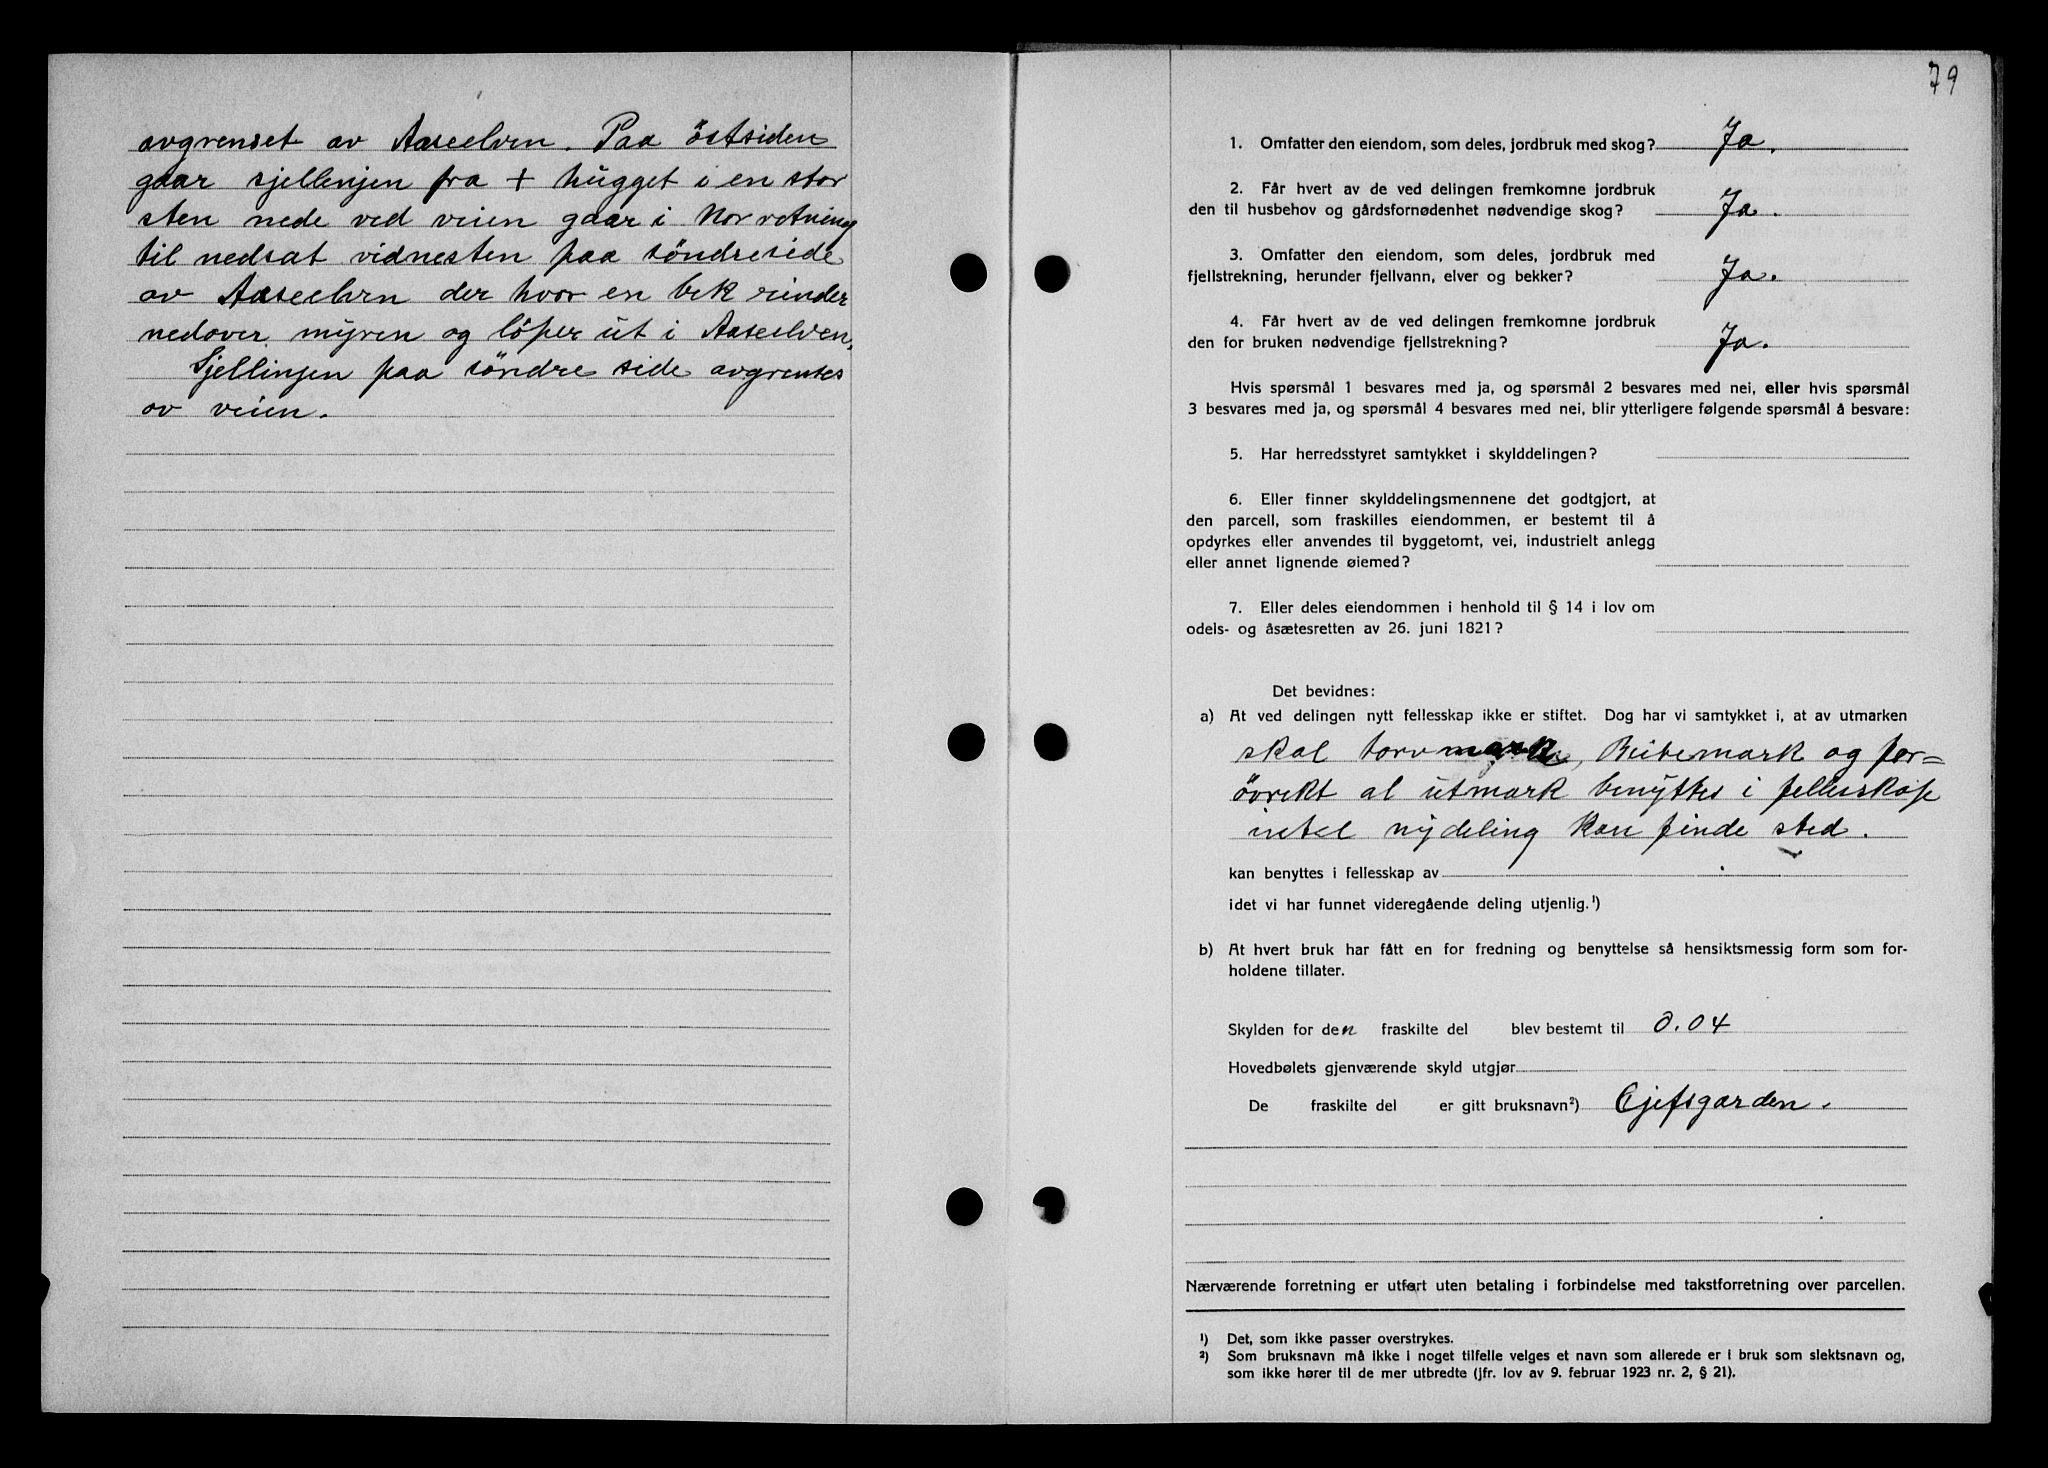 avgrenset av Aaseelven. Paa östsiden
gaar sjellinjen fra + hugget i en stor
sten nede ved veien gaar i Nor retning
til nedsat vidnesten paa söndreside
av Aaseelven der hvor en bek rinder
nedover myren og löper ut i Aaseelven.
Sjellinjen paa söndre side avgrenses
av veien.
79
1. Omfatter den eiendom, som deles, jordbruk med skog? Ja.
2. Får hvert av de ved delingen fremkomne jordbruk
den til husbehov og gårdsfornødenhet nødvendige skog? Ja.
3. Omfatter den eiendom, som deles, jordbruk med
fjellstrekning, herunder fjellvann, elver og bekker? Ja.
4. Får hvert av de ved delingen fremkomne jordbruk
den for bruken nødvendige fjellstrekning? Ja.
Hvis spørsmål 1 besvares med ja, og spørsmål 2 besvares med nei, eller hvis spørsmål
3 besvares med ja, og spørsmål 4 besvares med nei, blir ytterligere følgende spørsmål å besvare:
5. Har herredsstyret samtykket i skylddelingen?
6. Eller finner skylddelingsmennene det godtgjort, at
den parcell, som fraskilles eiendommen, er bestemt til å
opdyrkes eller anvendes til byggetomt, vei, industrielt anlegg
eller annet lignende øiemed?
7. Eller deles eiendommen i henhold til § 14 i lov om
odels- og åsætesretten av 26. juni 1821?
Det bevidnes:
a) At ved delingen nytt fellesskap ikke er stiftet. Dog har vi samtykket i, at av utmarken
skal torvmark, Beitemark og for=
övrekt al utmark benyttes i fellesskap
intel nydeling kan finde sted.
kan benyttes i fellesskap av
idet vi har funnet videregående deling utjenlig.¹)
b) At hvert bruk har fått en for fredning og benyttelse så hensiktsmessig form som for-
holdene tillater.
Skylden for den fraskilte del blev bestemt til 0.04
Hovedbølets gjenværende skyld utgjør
De fraskilte del er gitt bruksnavn²) Gjefsgarden.
Nærværende forretning er utført uten betaling i forbindelse med takstforretning over parcellen.
¹) Det, som ikke passer overstrykes.
²) Som bruksnavn må ikke i noget tilfelle velges et navn som allerede er i bruk som slektsnavn og,
som ikke hører til de mer utbredte (jfr. lov av 9. februar 1923 nr. 2, § 21).